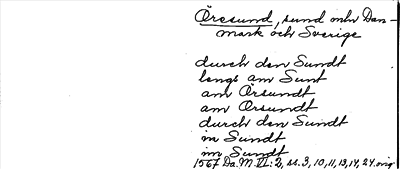 Öresund, sund mln Dan-
mark och Sverige
durch den Sundt
lengs am Sunt
am Örsundt
am Örsundt
durch den Sundt
in Sundt
im Sundt
1567 Da. M. VI: 2, ss. 3, 10, 11, 13, 14, 24. orig